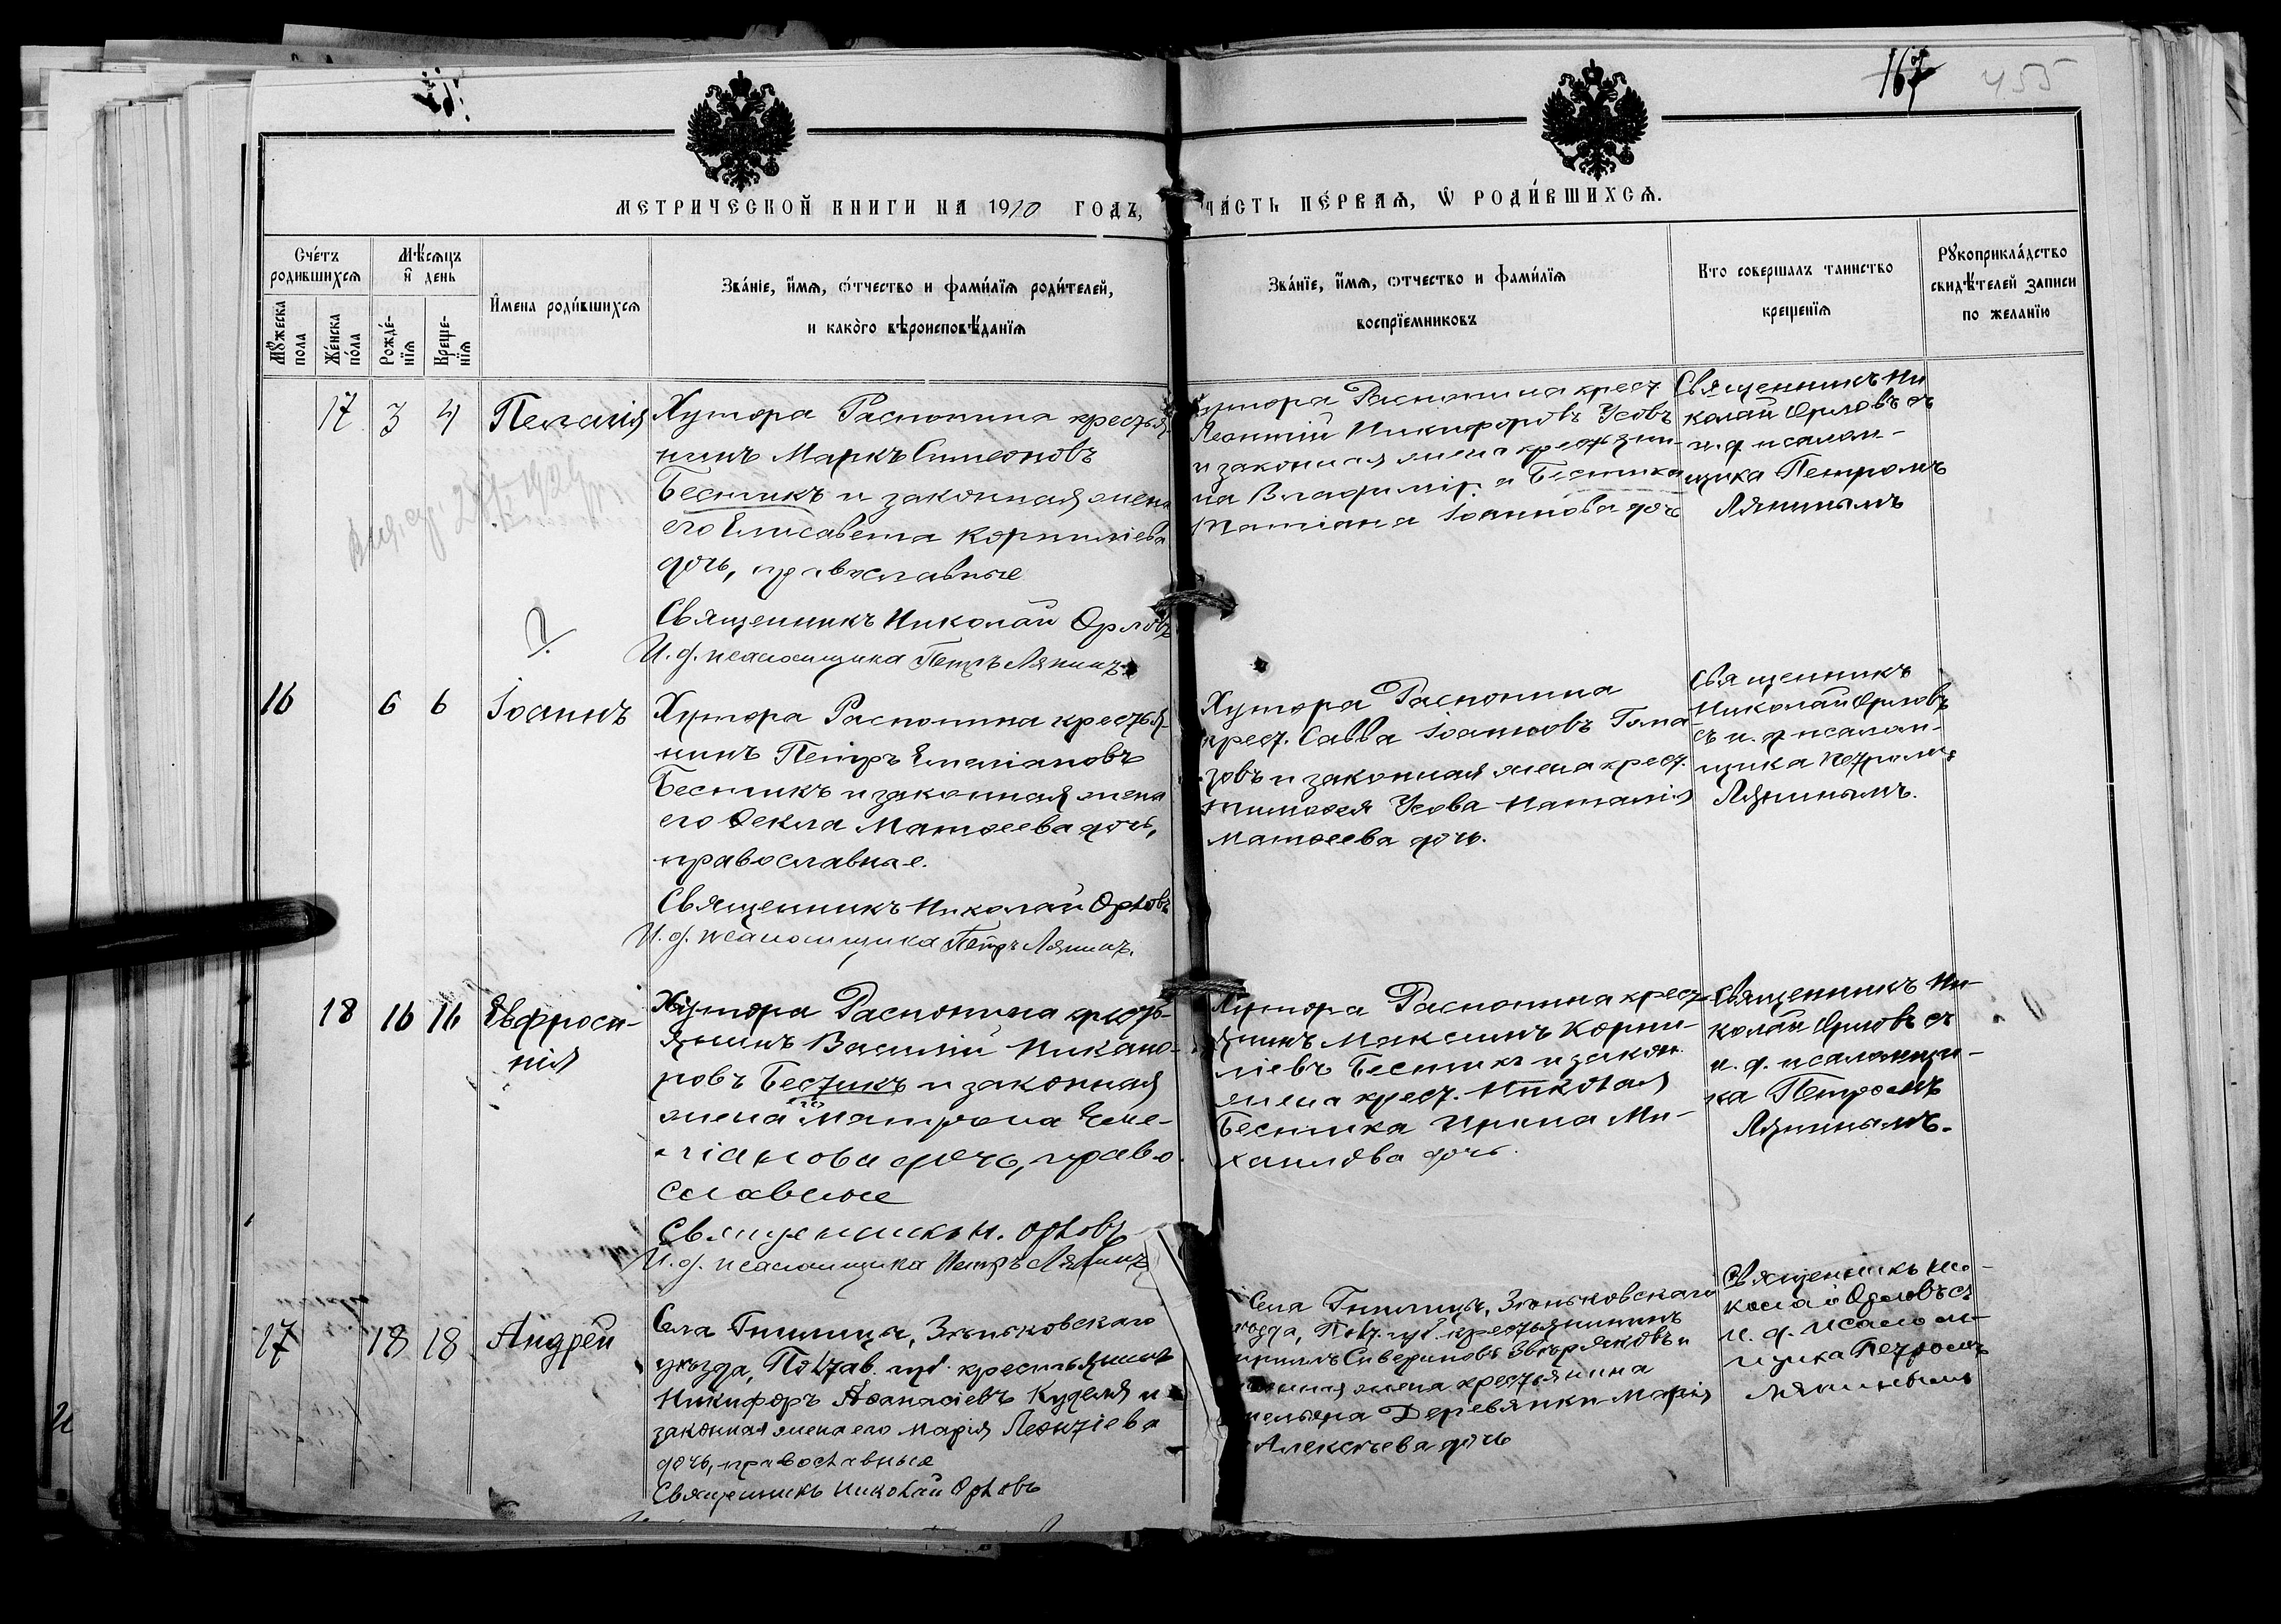 167
455
МЕТРИЧЕСКОЙ КНИГИ НА 1910 ГОДЪ, ЧАСТЬ ПЕРВАЯ, Ѡ РОДИВШИХСЯ.
Счетъ родившихся
Мужеска пола
Женска пола
Мѣсяцъ и день
Рожденія
Крещенія
Имена родившихся
Званіе, имя, отчество и фамилія родителей,
и какого вѣроисповѣданія
Званіе, имя, отчество и фамилія
воспріемниковъ
Кто совершалъ таинство
крещенія
Рукоприкладство
свидѣтелей записи
по желанію
17 3 4 Пелагія
Хутора Распопина крестья-
нинъ Маркъ Симеоновъ
Бесчикъ и законная жена
его Елисавета Корниліева
дочь, православные
Священникъ Николай Орловъ
И. д. псаломщика Петръ Лянинъ
Хутора Распопина крест.
Леонтій Никифоровъ Усовъ
и законная жена крестьяни-
на Владимір. а Бесчика
Татіана Іоаннова дочь
Священникъ Ни
колай Орловъ съ
и. д. псалом-
щика Петромъ
Лянинымъ
16 6 6 Іоаннъ
Хутора Распопина крестья-
нинъ Петръ Емеліановъ
Бесчикъ и законная жена
его Ѳекла Матѳеева дочь,
православные.
Священникъ Николай Орловъ
И. д. псаломщика Петръ Лянинъ.
Хутора Распопина
крест. Савва Іоанновъ
и законная жена крест.
Тимоѳея Усова Наталія
Матѳеева дочь.
Священникъ
Николай Орловъ
съ и. д. псалом-
щика Петромъ
Лянинымъ.
18 16 16 Евфроси-
нія
Хутора Распопина кресть-
янинъ Василій Никано-
ровъ Бесчикъ и законная
жена Матрона Еме-
ліанова дочь, право-
славные
Священникъ Н. Орловъ
И. д. псаломщика Петръ Лянинъ
Хутора Распопина крест-
янинъ Максимъ Корни-
ліевъ Бесчикъ и закон.
жена крест. Николая
Бесчика Ирина Ми-
хаилова дочь.
Священникъ Ни-
колай Орловъ съ
и. д. псаломщи-
ка Петромъ
Лянинымъ.
17 18 18 Андрей
Села Гнилицы, Зѣньковскаго
уѣзда, Полтав. губ. крестьянинъ
Никифоръ Аѳанасіевъ Куделя и
законная жена его Марія Леонтіева
дочь, православные
Священникъ Николай Орловъ
Села Гнилицы, Зѣньковскаго
уѣзда, Полт. губ. крестьянинъ
Сиверіновъ и
жена крестьянина
Деревянки Марія
Алексѣева дочь
Священникъ Ни-
колай Орловъ съ
и. д. псалом-
щика Петромъ
Лянинымъ